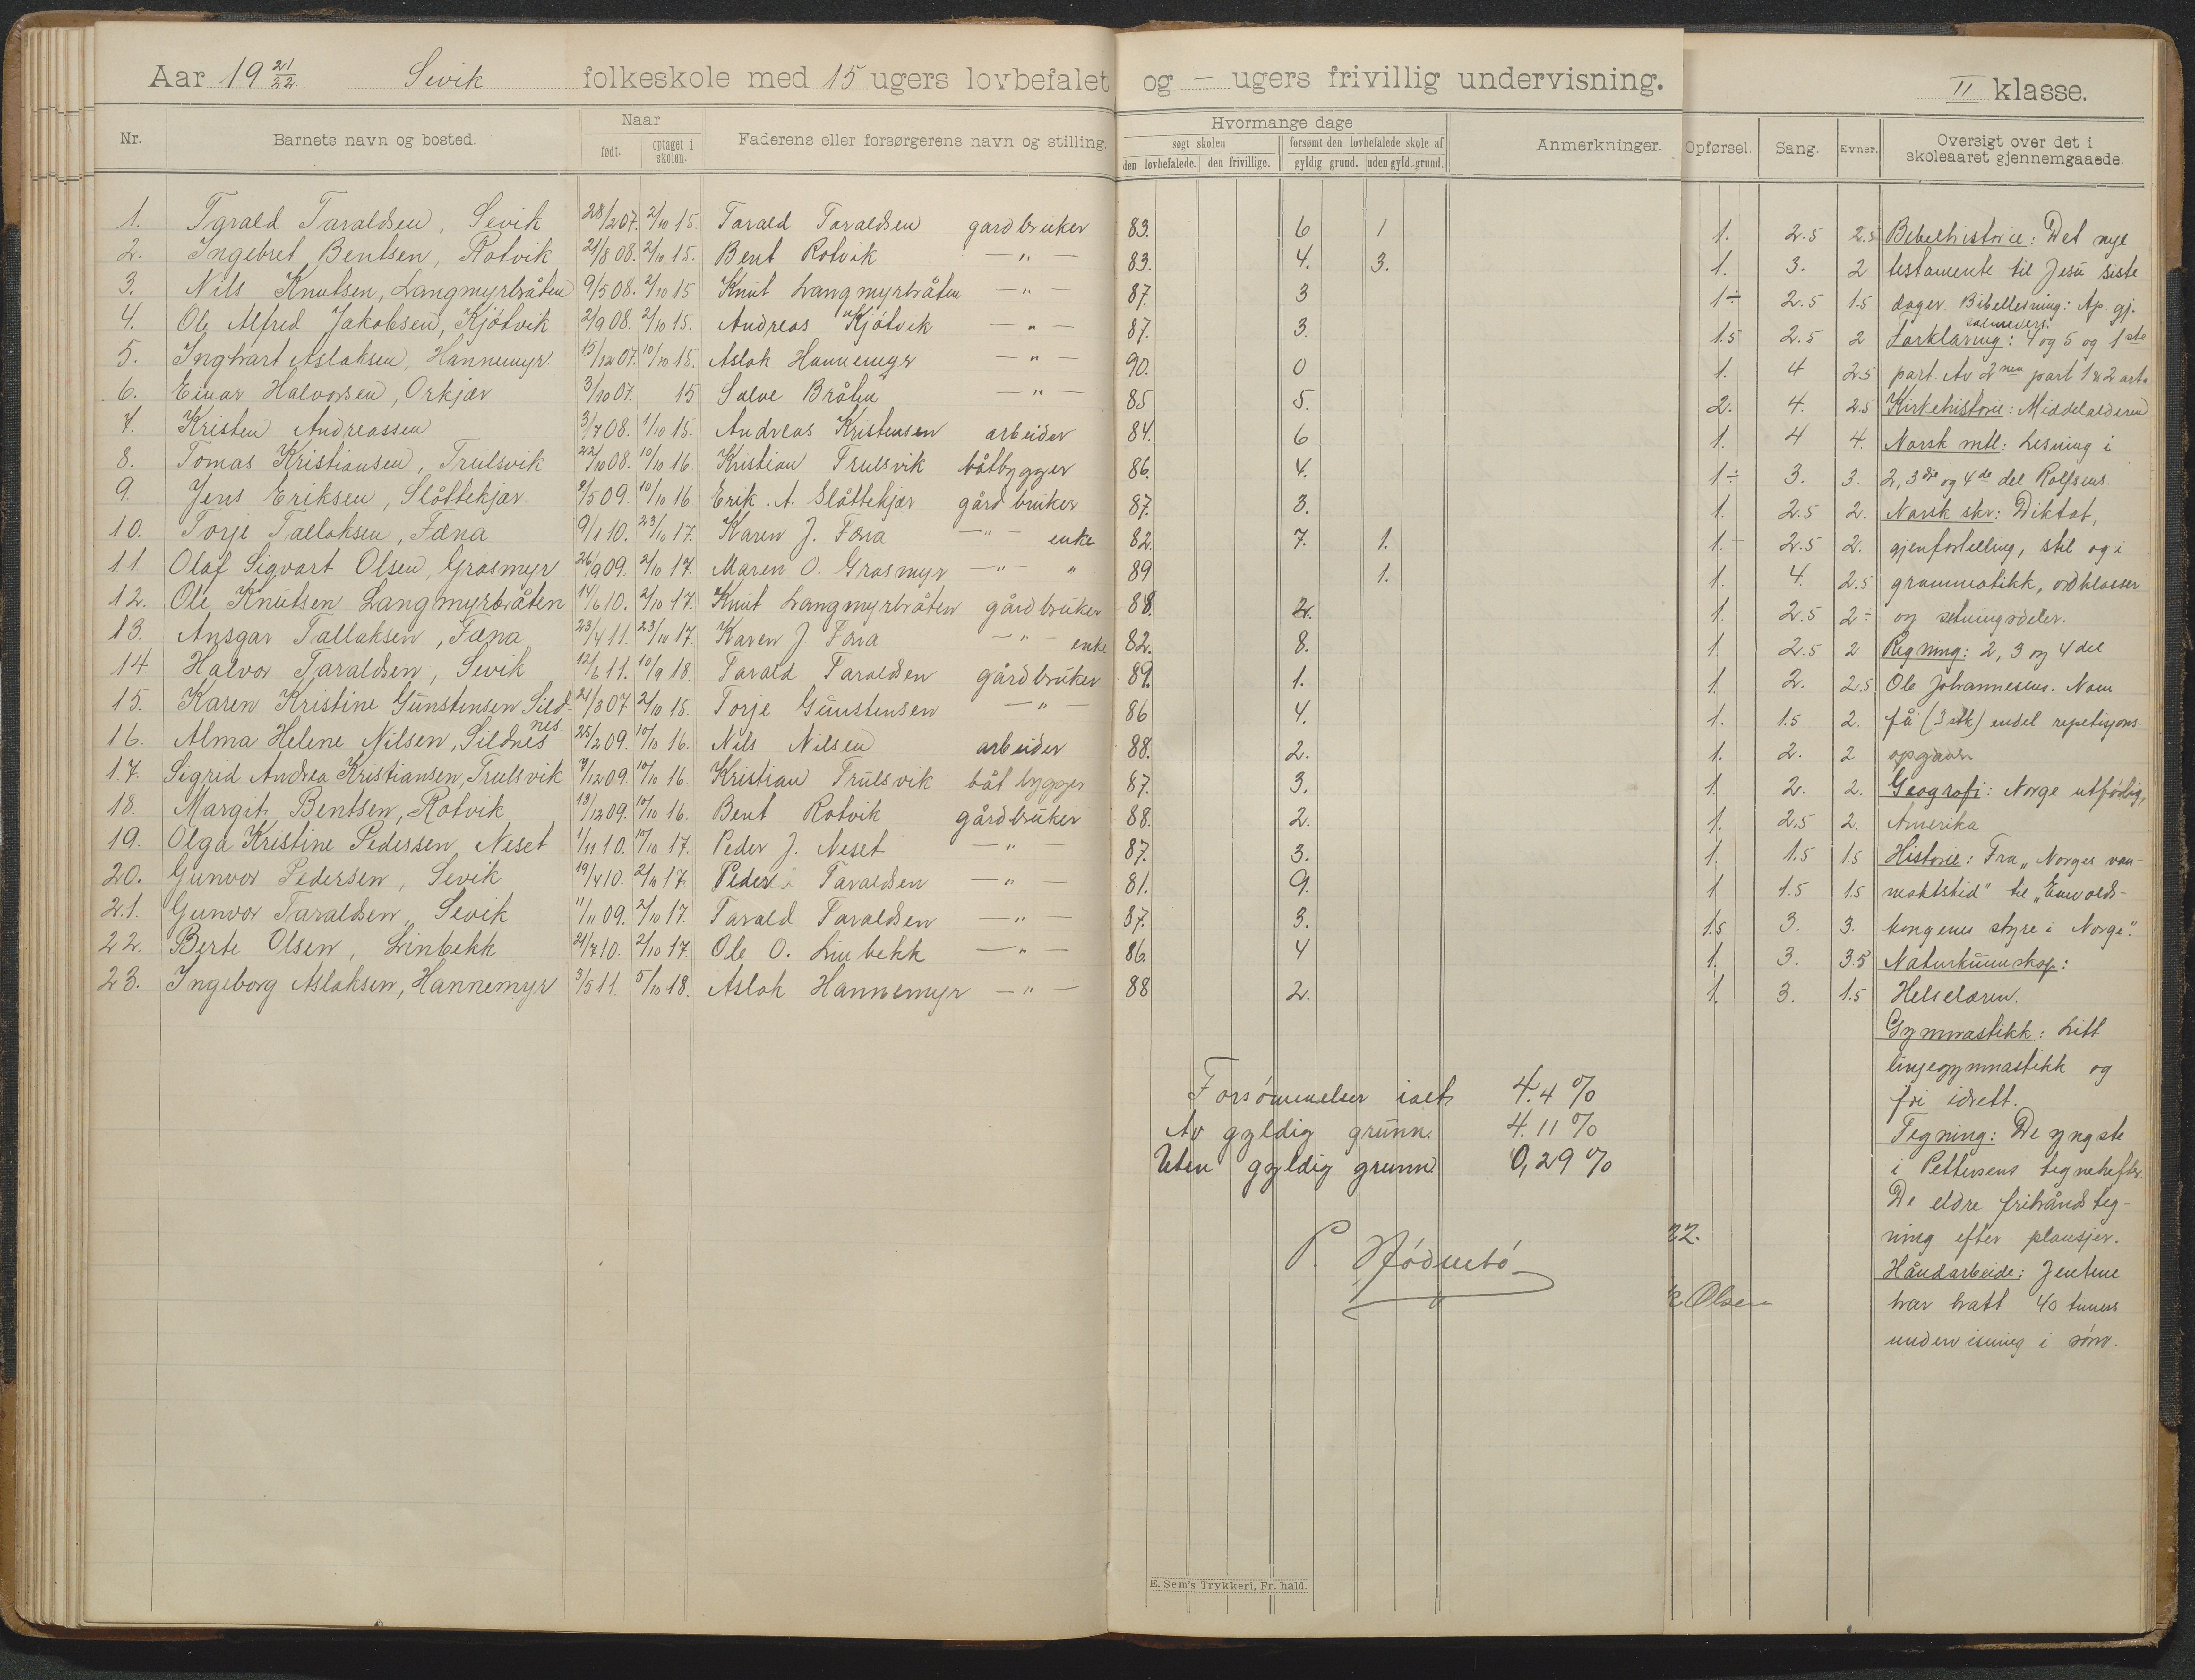 Aar 19 21/22. Sevik folkeskole med 15 ugers lovbefalet og — ugers frivillig undervisning. II klasse.
Nr. Barnets navn og bosted. Naar født. optaget i skolen. Faderens eller forsørgerens navn og stilling. Hvormange dage søgt skolen den lovbefalede. den frivillige. forsømt den lovbefalede skole af gyldig grund. uden gyld. grund. Anmerkninger. Opførsel. Sang. Evner. Oversigt over det i skoleaaret gjennemgaaede.
1. Tarald Taraldsen, Sevik 28/2 07. 2/10 15. Tarald Taraldsen gardbruker 83. 6 1 1. 2.5 2.5 Bibelhistorie: Det nye
2. Ingebret Bentsen, Rotvik 21/8 08. 2/10 15. Bent Rotvik — " — 83. 4. 3. 1. 3. 2 testamente til Jesu siste
3. Nils Knutsen, Langmyrbråten 9/5 08. 2/10 15 Knut Langmyrbråten — " — 87. 3 1÷ 2.5 1.5 dager. Bibellesning: Ap. gj.
salmevers.
4. Ole Alfred Jakobsen, Kjøtvik 2/9 08. 2/10 15. Andreas Kjøtvik — " — 87. 3. 1.5 2.5 2 Forklaring: 4 og 5 og 1ste
5. Inghart Aslaksen, Hannemyr. 15/12 07. 10/10 15. Aslak Hannemyr — " — 90. 0 1. 4 2.5 part. Av 2nen part 1 & 2 art.
6. Einar Halvorsen, Orkjær 3/10 07. 15 Salve Bråten — " — 85 5. 2. 4. 2.5 Kirkehistorie: Middelalderen
7. Kristen Andreassen 3/7 08. 1/10 15. Andreas Kristensen arbeider 84. 6 1. 4 4. Norsk mtl: Lesning i
8. Tomas Kristiansen, Trulsvik 22/10 08. 10/10 16. Kristian Trulsvik båtbygger 86. 4. 1÷ 3. 3. 2, 3dje og 4de del Rolfsens.
9. Jens Eriksen, Slåttekjær. 9/5 09. 10/10 16 Erik. A. Slåttekjær gård bruker 87. 3. 1. 2.5 2. Norsk skr: Diktat,
10. Torje Tallaksen, Fæna 9/1 10. 23/10 17. Karen J. Fæna — " — enke 82. 7. 1. 1. 2.5 2. gjenfortelling, stil og i
11. Olaf Sigvart Olsen, Grasmyr 26/9 09. 2/10 17. Maren O. Grasmyr — " — " 89 1. 1. 4. 2.5 grammatikk, ordklasser
12. Ole Knutsen Langmyrbråten 14/6 10. 2/10 17. Knut Langmyrbråten gårdbruker 88. 2. 1. 2.5 2÷ og setningsdeler.
13. Ansgar Tallaksen, Fæna 23/4 11. 23/10 17. Karen J. Fæna — " — enke 82. 8. 1 2.5 2 Regning: 2, 3 og 4 del
14 Halvor Taraldsen, Sevik 12/6 11. 10/9 18. Tarald Taraldsen gårdbruker 89. 1. 1. 2. 2.5 Ole Johannesens. Noen
15. Karen Kristine Gunstensen Sildnes 21/3 07 2/10 15. Torje Gunstensen — " — 86 4. 1. 1.5 2. få (3 stk) endel repetisjons-
16. Alma Helene Nilsen, Sildnes 25/2 09. 10/10 16. Nils Nilsen arbeider 88. 2. 1. 2. 2 opgaver.
17. Sigrid Andrea Kristiansen, Trulsvik 9/12 09. 10/10 16. Kristian Trulsvik båt bygger 87. 3. 1. 2. 2. Geografi: Norge utførlig,
18. Margit Bentsen, Rotvik 13/12 09. 10/10 16. Bent Rotvik gårdbruker 88. 2. 1. 2.5 2. Amerika
19. Olga Kristine Pedersen, Neset 1/11 10. 10/10 17. Peder J. Neset — " — 87. 3. 1. 1.5 1.5 Historie: Fra „Norges van-
20. Gunvor Pedersen, Sevik 19/4 10. 2/10 17. Peder Taraldsen — " — 81. 9. 1 1.5 1.5 maktstid" til „Envolds-
21. Gunvor Taraldsen, Sevik 11/11 09. 2/10 17. Tarald Taraldsen — " — 87. 3. 1.5 3. 3. kongenes styre i Norge".
22. Berte Olsen, Linbekk 21/7 10. 2/10 17. Ole O. Linbekk — " — 86. 4 1. 3. 3.5 Naturkunnskap:
23. Ingeborg Aslaksen, Hannemyr 3/5 11. 5/10 18. Aslak Hannemyr — " — 88 2. 1. 3. 1.5 Helselæren.
Gymnastikk: Litt
linjegymnastikk og
fri idrett.
Tegning: De yngste
i Pettersens tegnehefter.
De eldre frihåndsteg-
ning efter plansjer.
Håndarbeide: Jentene
har hatt 40 timers
undervisning i søm.
Forsømmelser ialt 4.4 %
Av gyldig grunn. 4.11 %
Uten gyldig grunn 0,29 %
22.
Olsen
E. Sem's Trykkeri, Fr. hald.